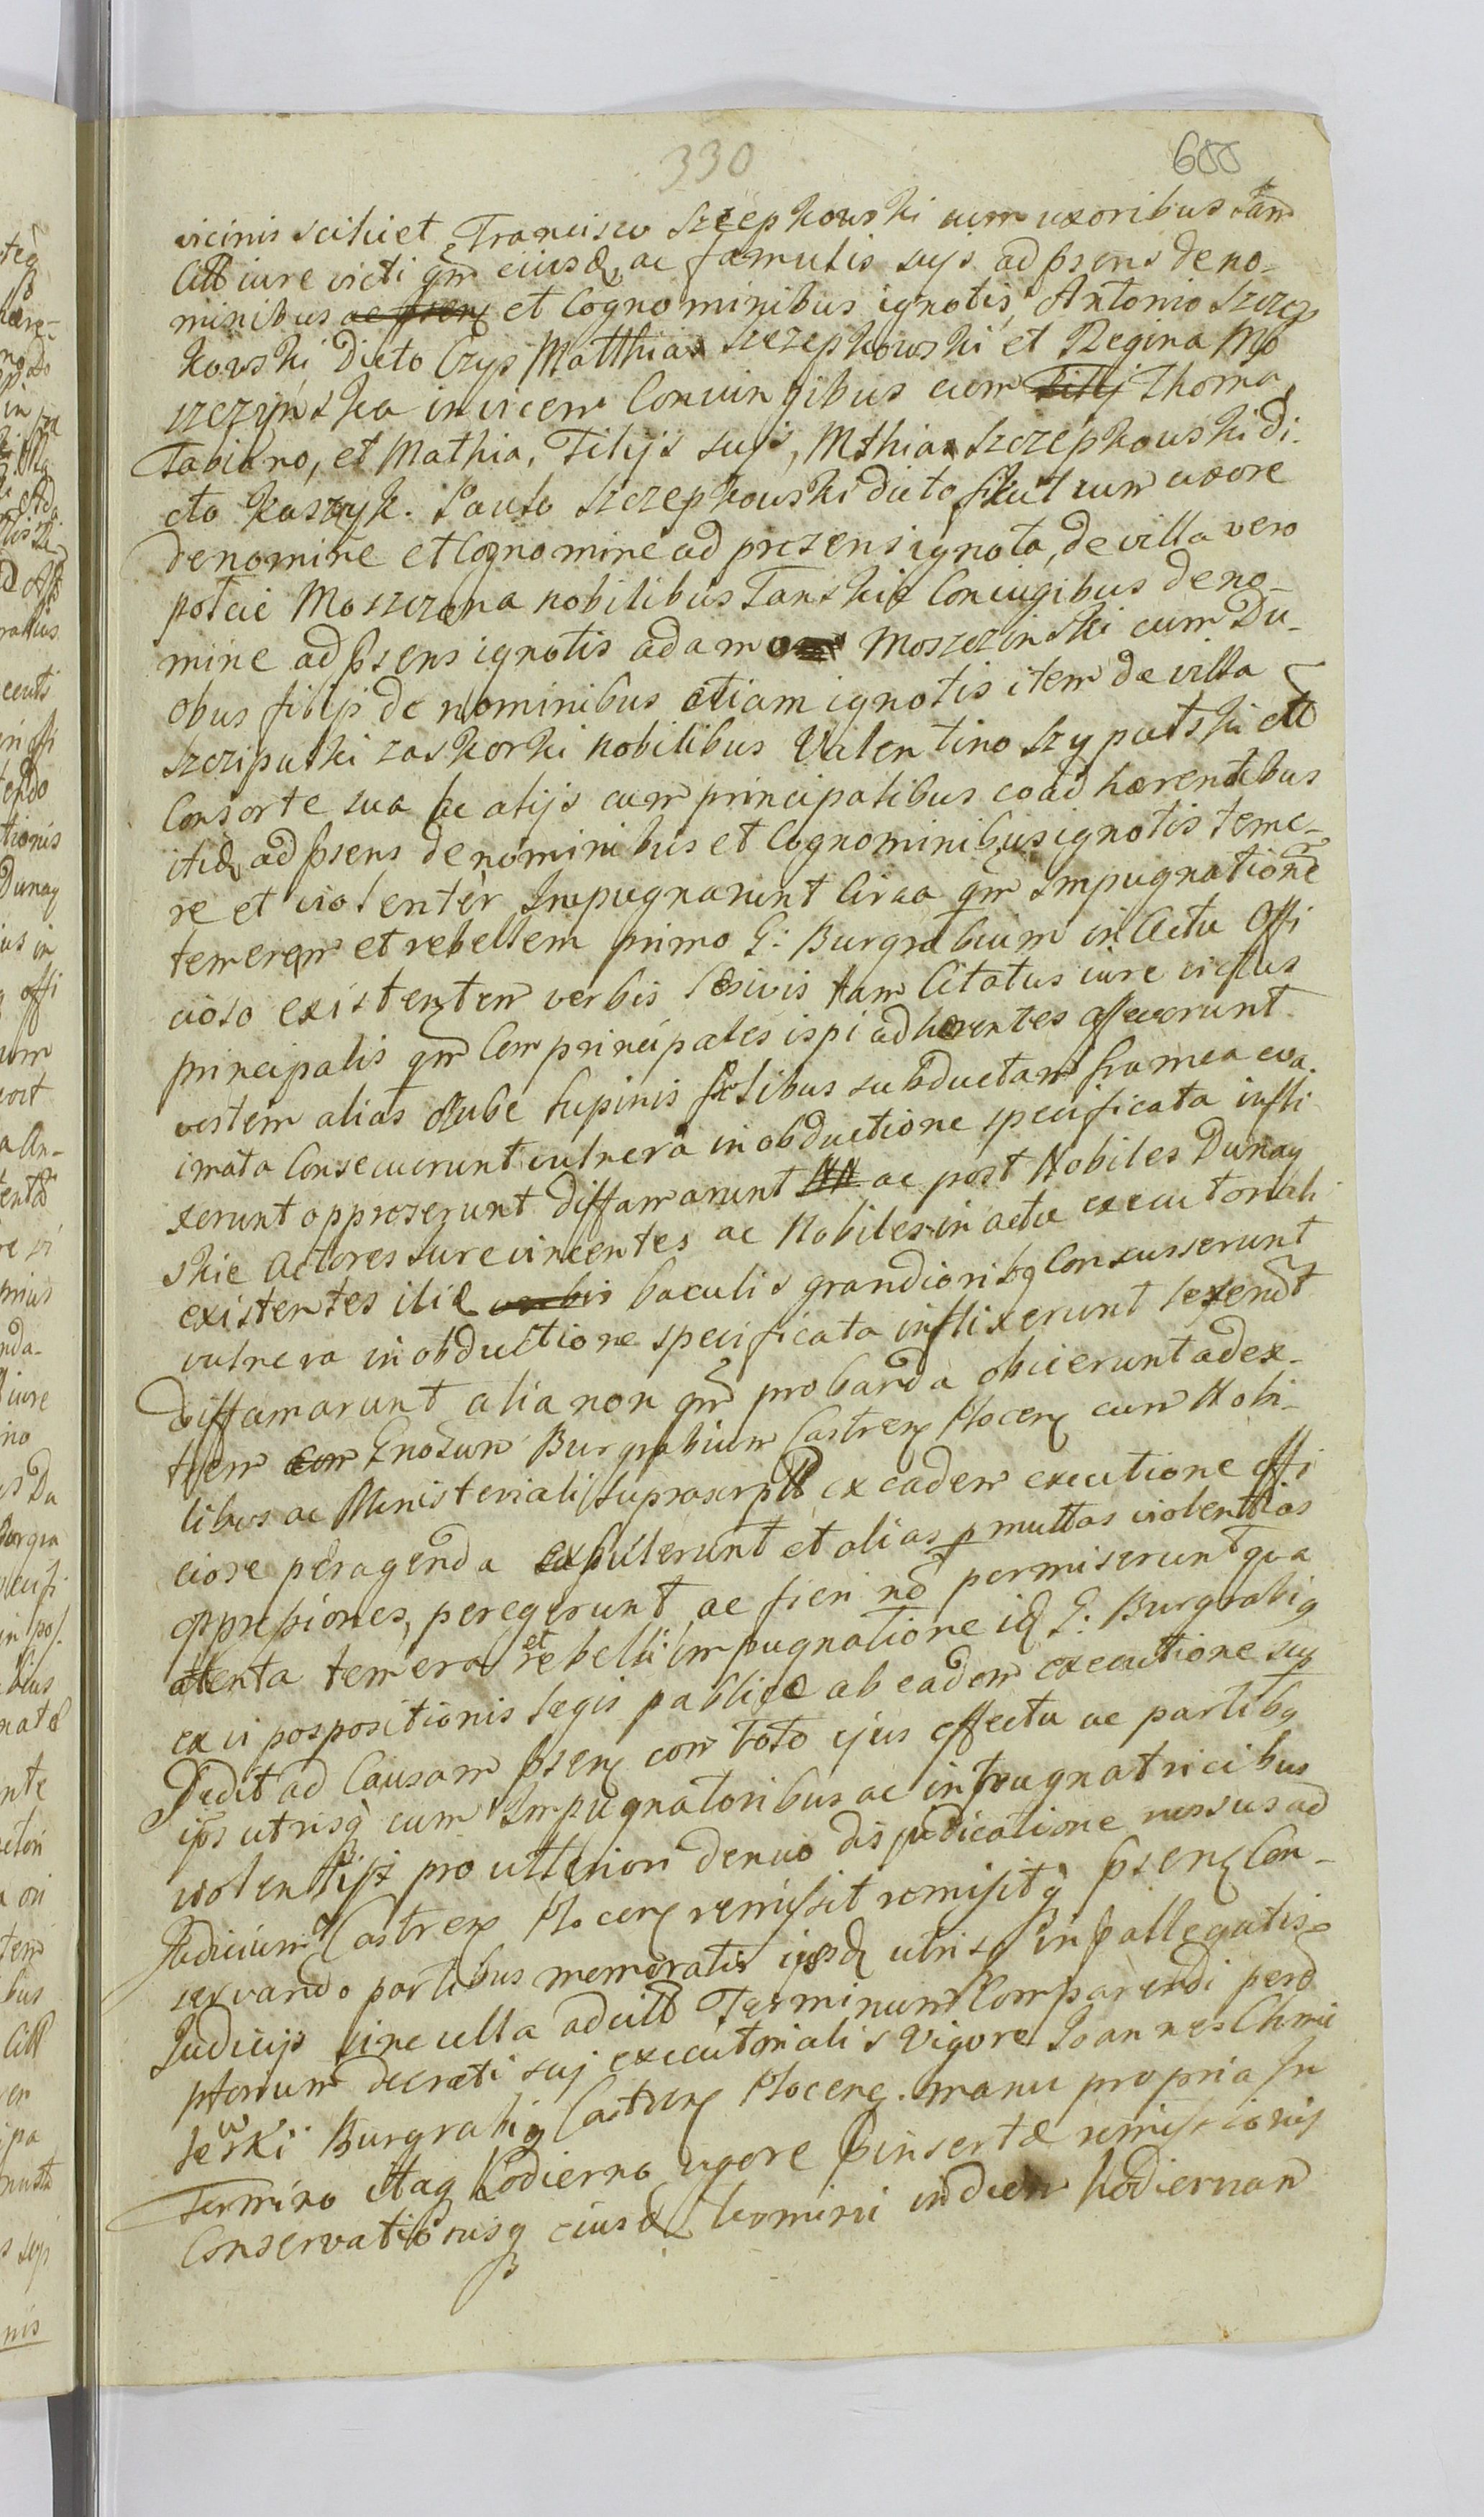 330 688
vicinis scilicet Francisco Szczepkowski cum uxoribus tam
Citt iure victi qm eiusd ac famulis suis ad psens de no-
minibus ac psenς et Cognominibus ignotis, Antonio Szczep
kowski Dicto Czyż Matthia Szczepkowski et Regina Mo
szczyńska invicem Coniungibus cum Filij Thoma
Fabiano, et Mathia, Filijs suis, Mthia Szczepkowski di-
cto Kaszzyk. Paulo Szczepkowski dicto cum uxore
de nomine et Cognomine ad prezens ignota, de villa vero
potcie Moszczona nobilibus Tanskie Coniugibus de no-
mine ad psens ignotis adamo Moszczinski cum Du-
obus filijs de nominibus etiam ignotis item de villa
Szczipulki zaskorki nobilibus Valentino Szypulski cu
Consorte sua ac alijs cum principalibus coad hærentibus
itid ad psens de nominibus et Cognominibus ignotis teme-
re et violentèr Impugnarunt Circa qm Impugnatione
temerem et rebellem primo G: Burgrabium in Actu Offi
cioso existentem verbis Læsivis tam Citatus iure victus
principalis qm Comprincipales ispi adhærentes affecerunt
vestem alias żube lupinis pelibus subductam framea eva-
imata Consecuerunt vulnera in obductione specificata infli
xerunt opproserunt diffamarunt ac post Nobiles Dunay
skie Actores Iure vincentes ac Nobiles in actu executoriali
existentes itid verbis baculis grandioribq Concusserunt
vulnera in obductione specificata inflixerunt leserunt
diffamarunt alia non qm probanda obiecerunt adex-
trem cum Gnosum Burgrabium Castrenς Plocenς cum Nobi-
libus ac Ministeriali suprascrptt ex eadem executione offi
ciose peragenda expulerunt et alias p multas violentias
oppressiones, peregerunt ac fieri no permiserunt qua
attenta temera et rebelli impugnatione id G: Burgrabiq
ex vi pospositionis Legis publicæ ab eadem executione sup
Dedit ad Causam psenς com toto ejus effectu ac partibq
ips utrisq cum Impugnatoribus ac inpugnatricibus
violentijs pro ulteriori denuo disjudicatione rursus ad
Judicium Castrenς Plocenς remissit remisitq psenς Con-
servando partibus memoratis ipsd utrisq in pallegatis
Judicijs sine ulla adcitt Terminum Comparendi perd
ptorium decreti sui executorialis vigore Joannes Chmie
lewski Burgrabiq Castrenς Plocenς manu propria In
Termino itaq hodierno vgore pinsertæ remissionis
Conservationisq eiusd termini in diem hodiernam